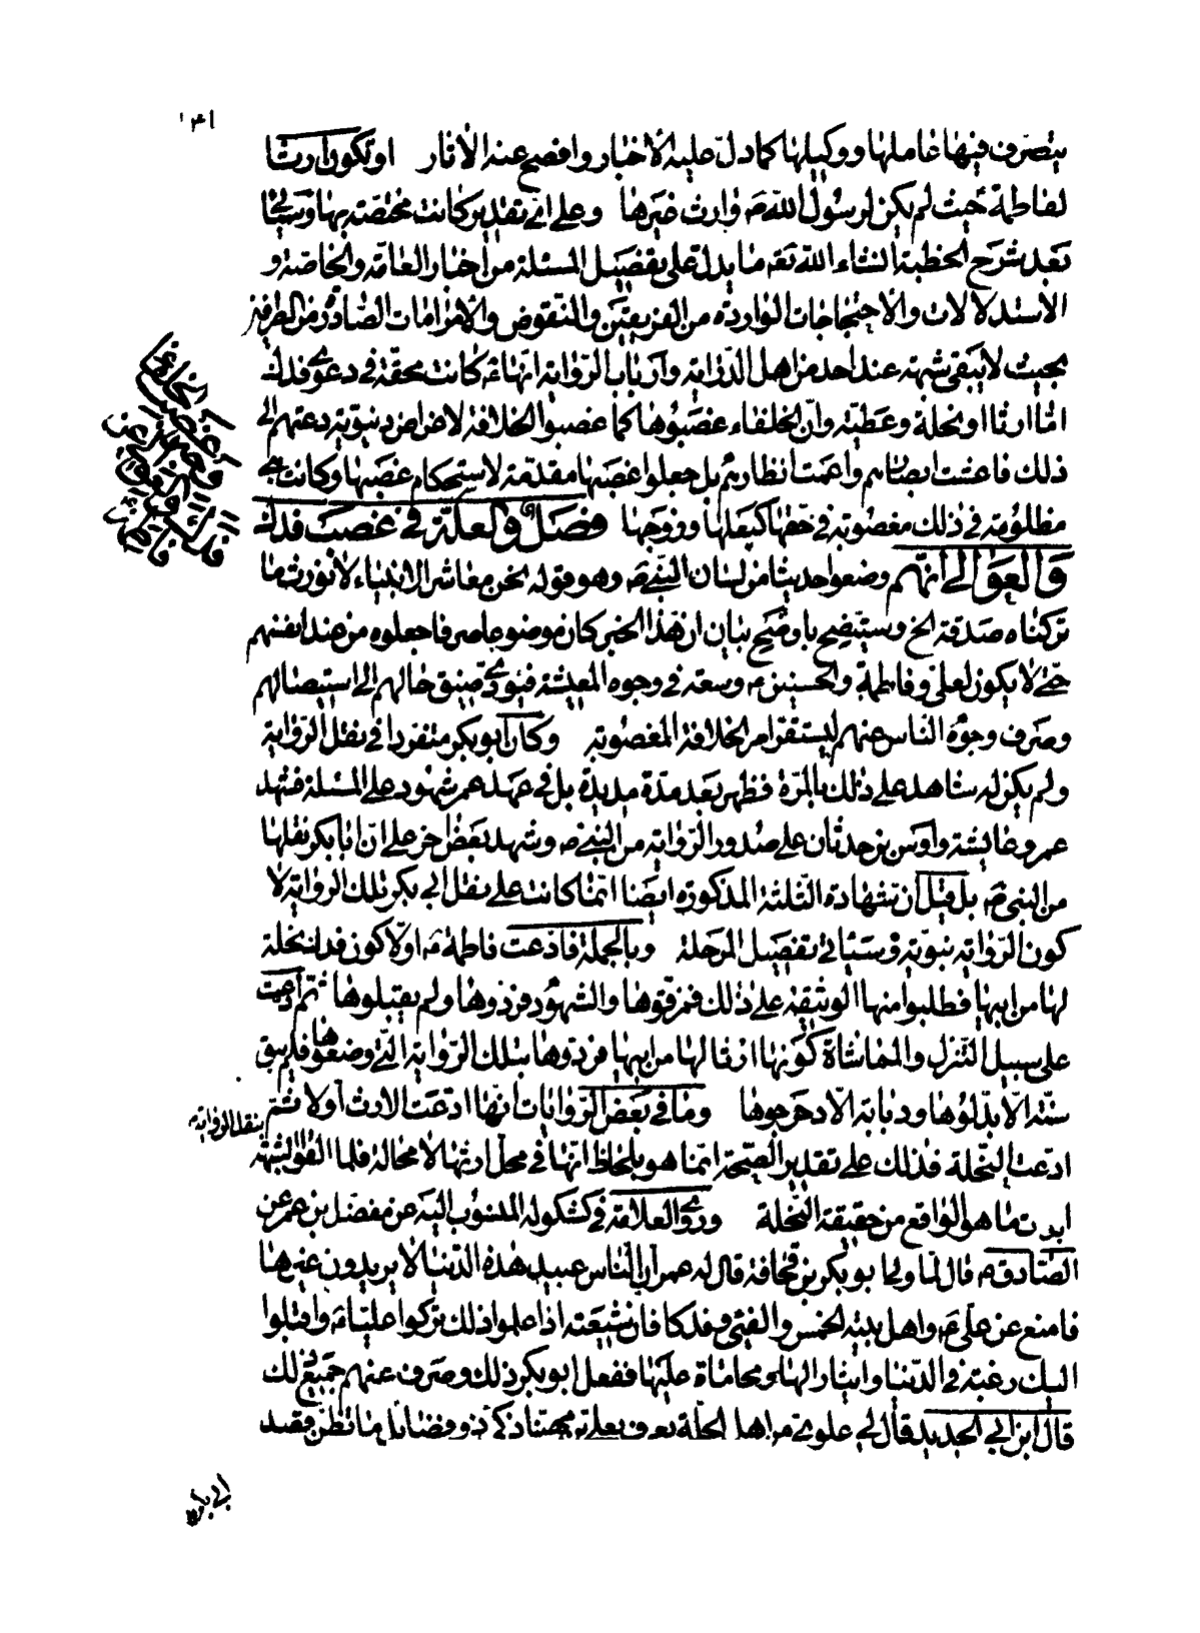 يتصرف فيها عاملها ووكيلها كما دل عليه الاخبار وافصح عنه الاثار او تكون ارثا
لفاطمة حيث لم يكن لرسول الله ص وارث غيرها وعلى اي تقدير كانت مختصة بها وسيأتي
بعد شرح الخطبة انشاء الله تعه ما يدل على تفصيل المسئلة من اخبار العامة والخاصة و
الاستدلالات والاحتجاجات الواردة من الفريقين والنقوض والالزامات الصادرة من الطرفين
بحيث لا يبقى شبهة عند احد من اهل الدراية وارباب الرواية انها ع كانت محقة في دعوى فدك
اما ارثا او نحلة وعطية وان الخلفاء غصبوها كما غصبوا الخلافة لاغراض دنيوية دعتهم الى
ذلك فاعشت ابصارهم واعمت انظارهم بل جعلوا غصبها مقدمة لاستحكام غصبها وكانت هي
مظلومة في ذلك مغصوبة في حقها كبعلها وزوجها فصل والعلة في غصب فدك
والعوالي انهم وضعوا حديثا من لسان النبي ص وهو قوله نحن معاشر الانبياء لا نورث ما
تركناه صدقة الخ وسيتضح باوضح بيان ان هذا الخبر كان موضوعا صرفا جعلوه من عند انفسهم
حتى لا يكون لعلي وفاطمة والحسنين ع وسعة في وجوه المعيشة فيؤدي ضيق حالهم الى استيصالهم
وصرف وجوه الناس عنهم ليستقر امر الخلافة المغصوبة وكان ابو بكر متفردا في نقل الرواية
ولم يكن له شاهد على ذلك بالمرة فظهر بعد مدة مديدة بل في عهد عمر شهود على المسئلة فشهد
عمر وعايشة واوس بن حدثان على صدور الرواية من النبي ص وشهد بعض اخر على ان ابا بكر نقلها
من النبي ص بل قيل ان شهادة الثلثة المذكورة ايضا انما كانت على نقل ابي بكر تلك الرواية لا
كون الرواية نبوية وسيأتي تفصيل المرحلة وبالجملة فادعت فاطمة ع اولا كون فدك نحلة
لها من ابيها فطلبوا منها الوثيقة على ذلك فمزقوها والشهود فردوها ولم يقبلوها ثم ادعت
على سبيل التنزل والمماشاة كونها ارثا لها من ابيها فردوها بتلك الرواية التي وضعوها فلم يبق
سنة الا بدلوها وديانة الا دحرجوها وما في بعض الروايات انها ادعت الارث اولا ثم
بنقل الرواية
ادعت النحلة فذلك على تقدير الصحة انما هو بلحاظ انها في محل ارثها لا محالة فلما القوا الشبهة
ابدت ما هو الواقع من حقيقة النحلة وروى العلامة في كشكوله المنسوب اليه عن مفضل بن عمر عن
الصادق ع قال لما ولي ابو بكر بن قحافة قال له عمر ان الناس عبيد هذه الدنيا لا يريدون غيرها
فامنع عن علي ع واهل بيته الخمس والفئ وفدكا فان شيعته اذا علموا ذلك تركوا عليا ع واقبلوا
اليك رغبة في الدنيا وايثارا لها ومحاماة عليها ففعل ابو بكر ذلك وصرف عنهم جميع ذلك
قال ابن ابي الحديد قال لي علوي من اهل الحلة يعرف بعلي بن مهنا ذكي ذو فضائل ما تظن قصد
ابي بكر